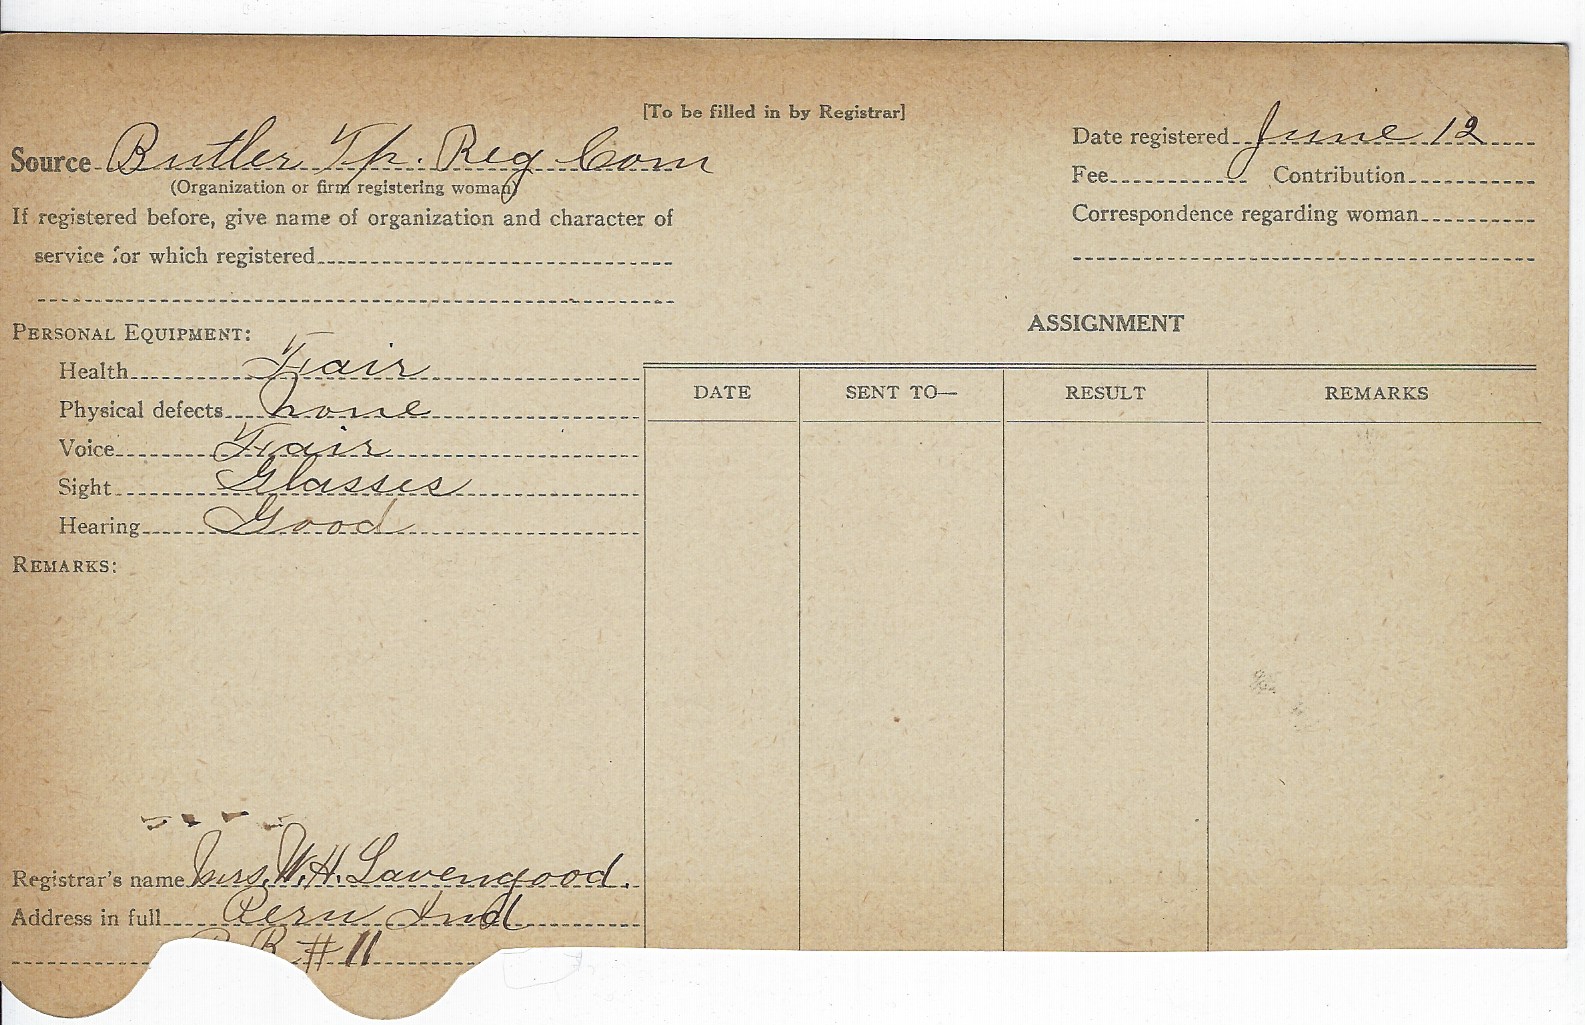 [To be filled in by Registrar]
Source Butler Tp. Reg Com
(Organization or firm registering woman)
If registered before, give name of organization and character of
service for which registered
Date registered June 12
Fee Contribution
Correspondence regarding woman
PERSONAL EQUIPMENT:
Health Fair
Physical defects none
Voice Fair
Sight Glasses
Hearing Good
REMARKS:
Registrar's name Mrs. W. H. Lavengood.
Address in full Peru Ind
R R # 11
ASSIGNMENT
DATE SENT TO— RESULT REMARKS